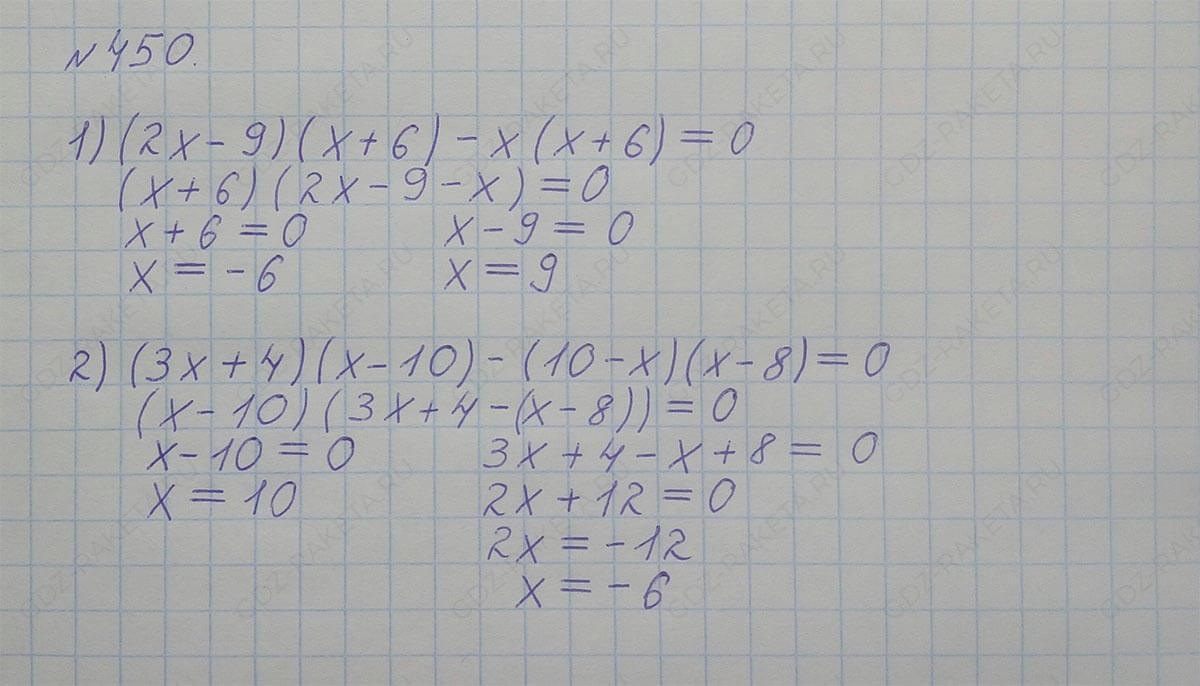 №450.
1) (2x-9)(x+6)-x(x+6)=0
(x+6)(2x-9-x)=0
x+6=0 x-9=0
x=-6 x=9
2) (3x+4)(x-10)-(10-x)(x-8)=0
(x-10)(3x+4-(x-8))=0
x-10=0 3x+4-x+8=0
x=10 2x+12=0
2x=-12
x=-6
GDZ-RAKETA.RU